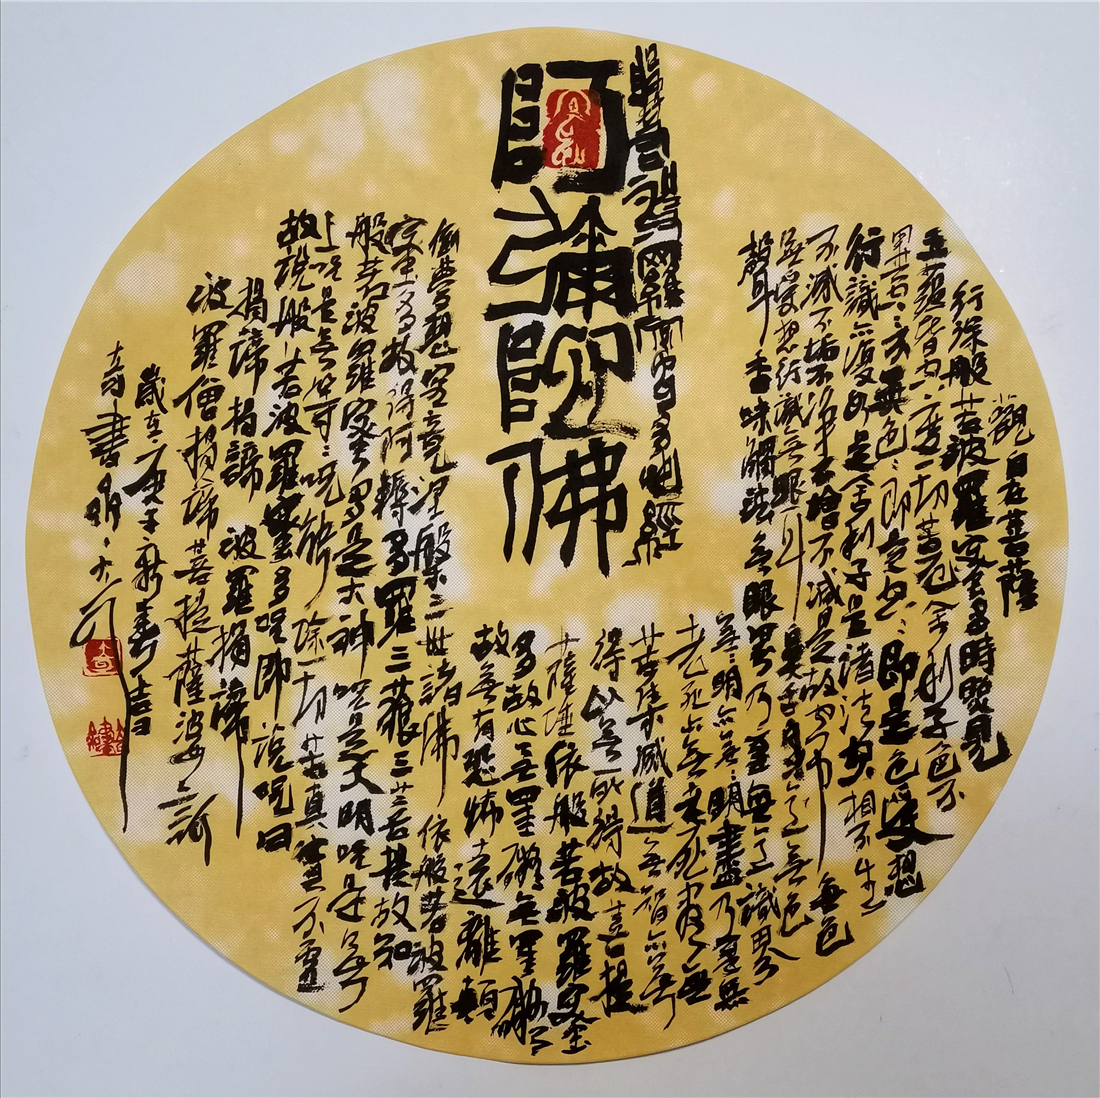 阿彌陀佛
摩訶般若波羅蜜多心經
觀自在菩薩
行深般若波羅蜜多時照見
五蘊皆空度一切苦厄舍利子色不
異空々不異色々即是空々即是色受想
行識亦復如是舍利子是諸法空相不生
不滅不垢不淨不增不減是故空中無色
無受想行識無眼耳鼻舌身意無色
聲香味觸法無眼界乃至無意識界
無々明亦無々明盡乃至無
老死亦無老死盡無
苦集滅道無智亦無
得以無所得故菩提
薩埵依般若波羅蜜
多故心無罣礙無罣礙
故無有恐怖遠離顛
倒夢想究竟涅槃三世諸佛依般若波羅
蜜多故得阿耨多羅三藐三菩提故知
般若波羅蜜多是大神咒是大明咒是無
上咒是無等々咒能除一切苦真實不虛
故說般若波羅蜜多咒即說咒曰
揭諦揭諦波羅揭諦
波羅僧揭諦菩提薩婆訶
歲在庚子新春吉日
奇書